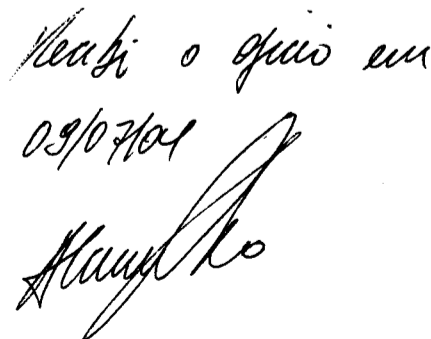 Recebi o ofício em
09/07/04